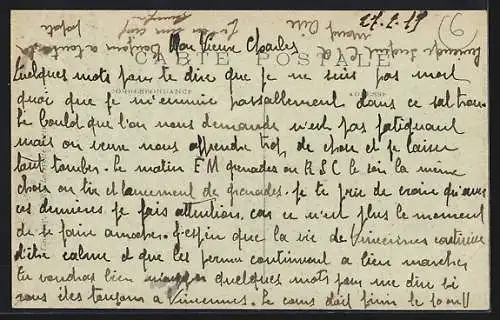 Mon vieux Charles
CARTE POSTALE
Quelques mots pour te dire que je ne suis pas mort
CORRESPONDANCE
ADRESSE
quoi que je m'ennuie passablement dans ce sal trou
Le boulot que l'on nous demande n'est pas fatiguant
mais on veux nous apprendre trop de chose et je laisse
tout tomber. Le matin FM grenades ou RSC le soir la même
chose ou tir et lancement de grenades. Je te prie de croire qu'avec
ces dernieres je fais attention, car ce n'est plus le moment
de se faire amocher. J'espère que la vie de Vincennes continue
d'être calme et que les permes continuent a bien marcher
Tu voudras bien quelques mots pour me dire si
vous êtes toujours a Vincennes. Le cours doit finir le 10 août